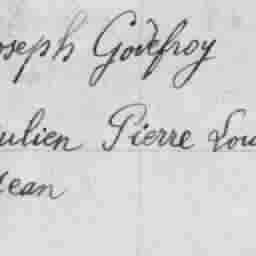 oseph Godefroy
ulien Pierre Lou
Jean